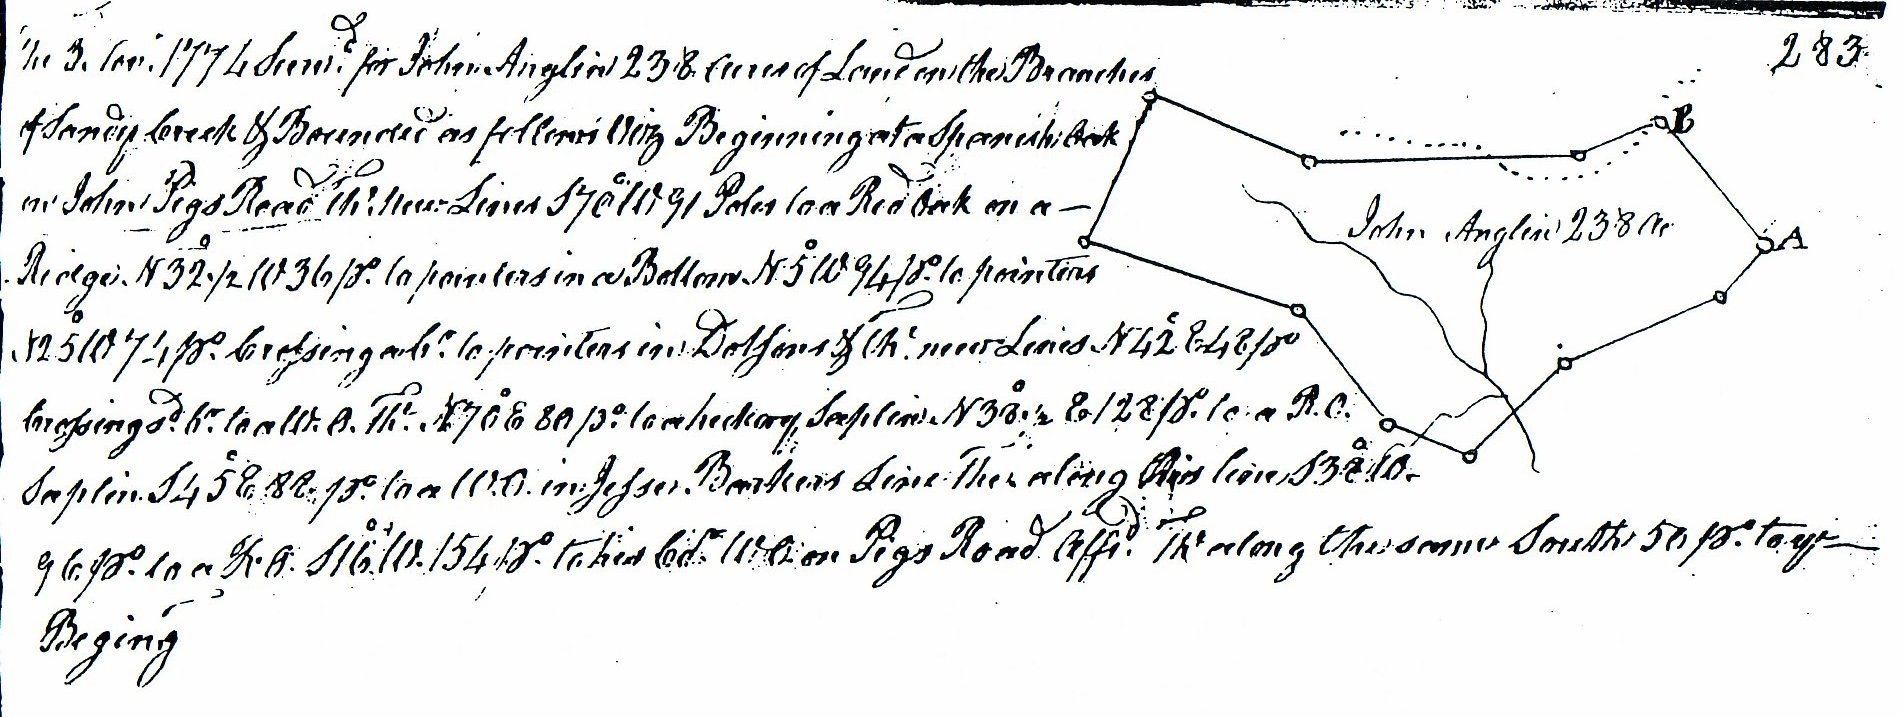 283
3. 1774 Survd. for John Anglin 238 Acres of Land on the Branches
of Sandy Creek & Bounded as follows Viz Beginning at a Spanish Oak
on John Pigs Road Thc. new Lines S70W 91 Poles to a Red Oak on a —
Ridge. N32½ W 36 po. to pointers in a Bottom N5W 94 po. to pointers
N25W 74 po. Crossing a br. to pointers in Dotsons & thc. new Lines N42E 48 po
Crossing sd. br. to a W.O. Thc. N70E 80 po. to a hickory Saplin N38½ E 128 po. to a R.O.
Saplin S45E 82 po. to a W.O. in Jesse Barkers Line Thc. along his line S32W
96 po. to a R.O. S16W 154 po. to his Cor. W.O. on Pigs Road Affd. Thc along the same South 50 po. to ye —
Beging
B
John Anglin 238 Ac
A